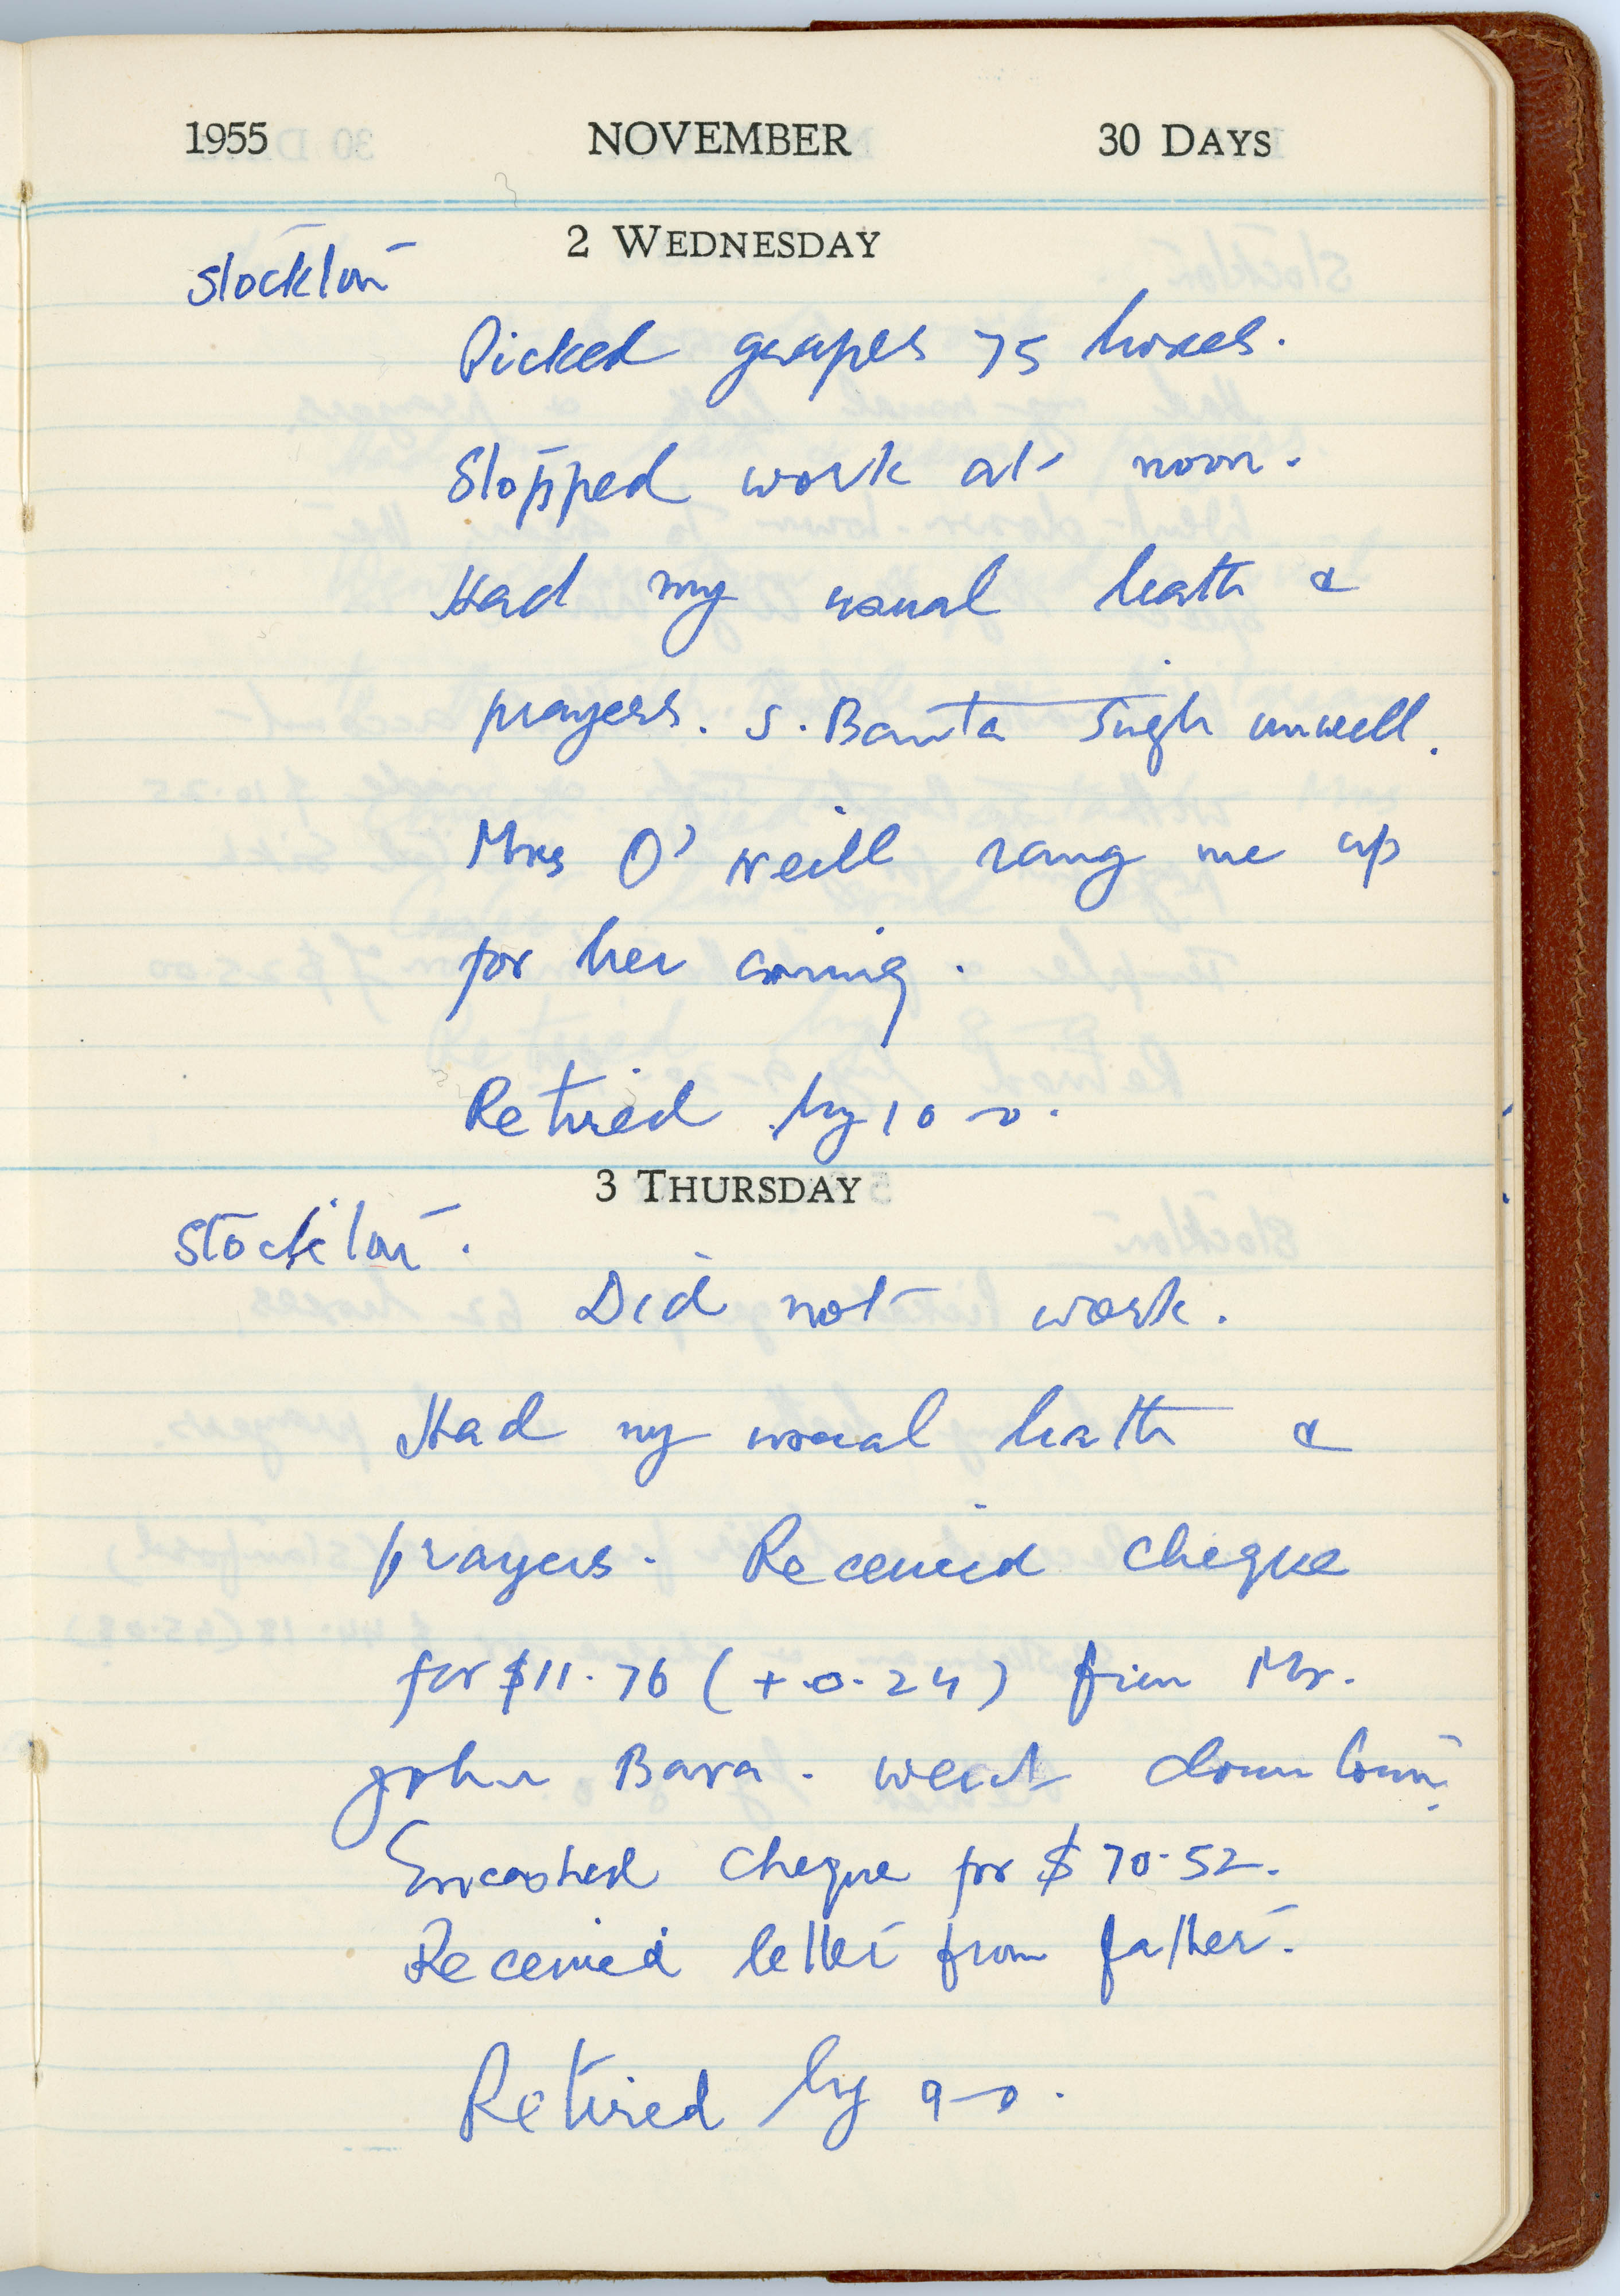 1955 NOVEMBER 30 DAYS
2 WEDNESDAY
Stockton
Picked grapes 75 boxes.
Stopped work at noon.
Had my usual bath &
prayers. S. Banta Singh unwell.
Mrs O'Neill rang me up
for her coming.
Retired by 10-0.
3 THURSDAY
Stockton.
Did not work.
Had my usual bath &
prayers. Received cheque
for $11.76 (+.0.24) from Mr.
John Bava. went down town.
Encashed cheque for $70.52.
Received letter from father.
Retired by 9-0.